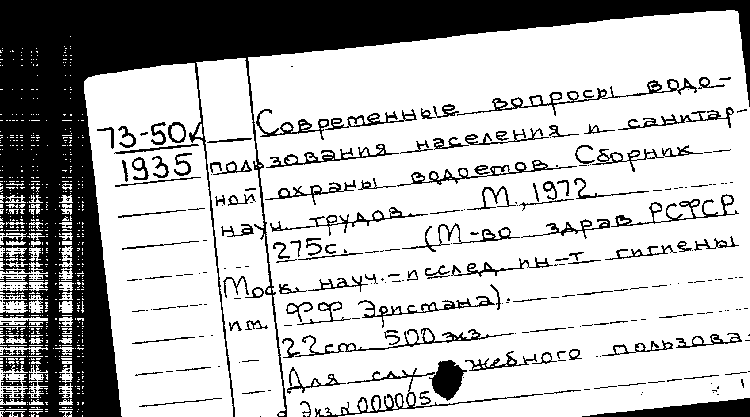 73-50
1935
Современные вопросы водо-
пользования населения и санитар-
ной охраны водоемов. Сборник
науч. трудов. М, 1972.
275с. (М-во здрав. РСФСР.
Моск. науч.-исслед. ин-т гигиены
им. Ф.Ф. Эрисмана).
22см. 500 экз.
Для служебного пользова-
Экз.N 000005.